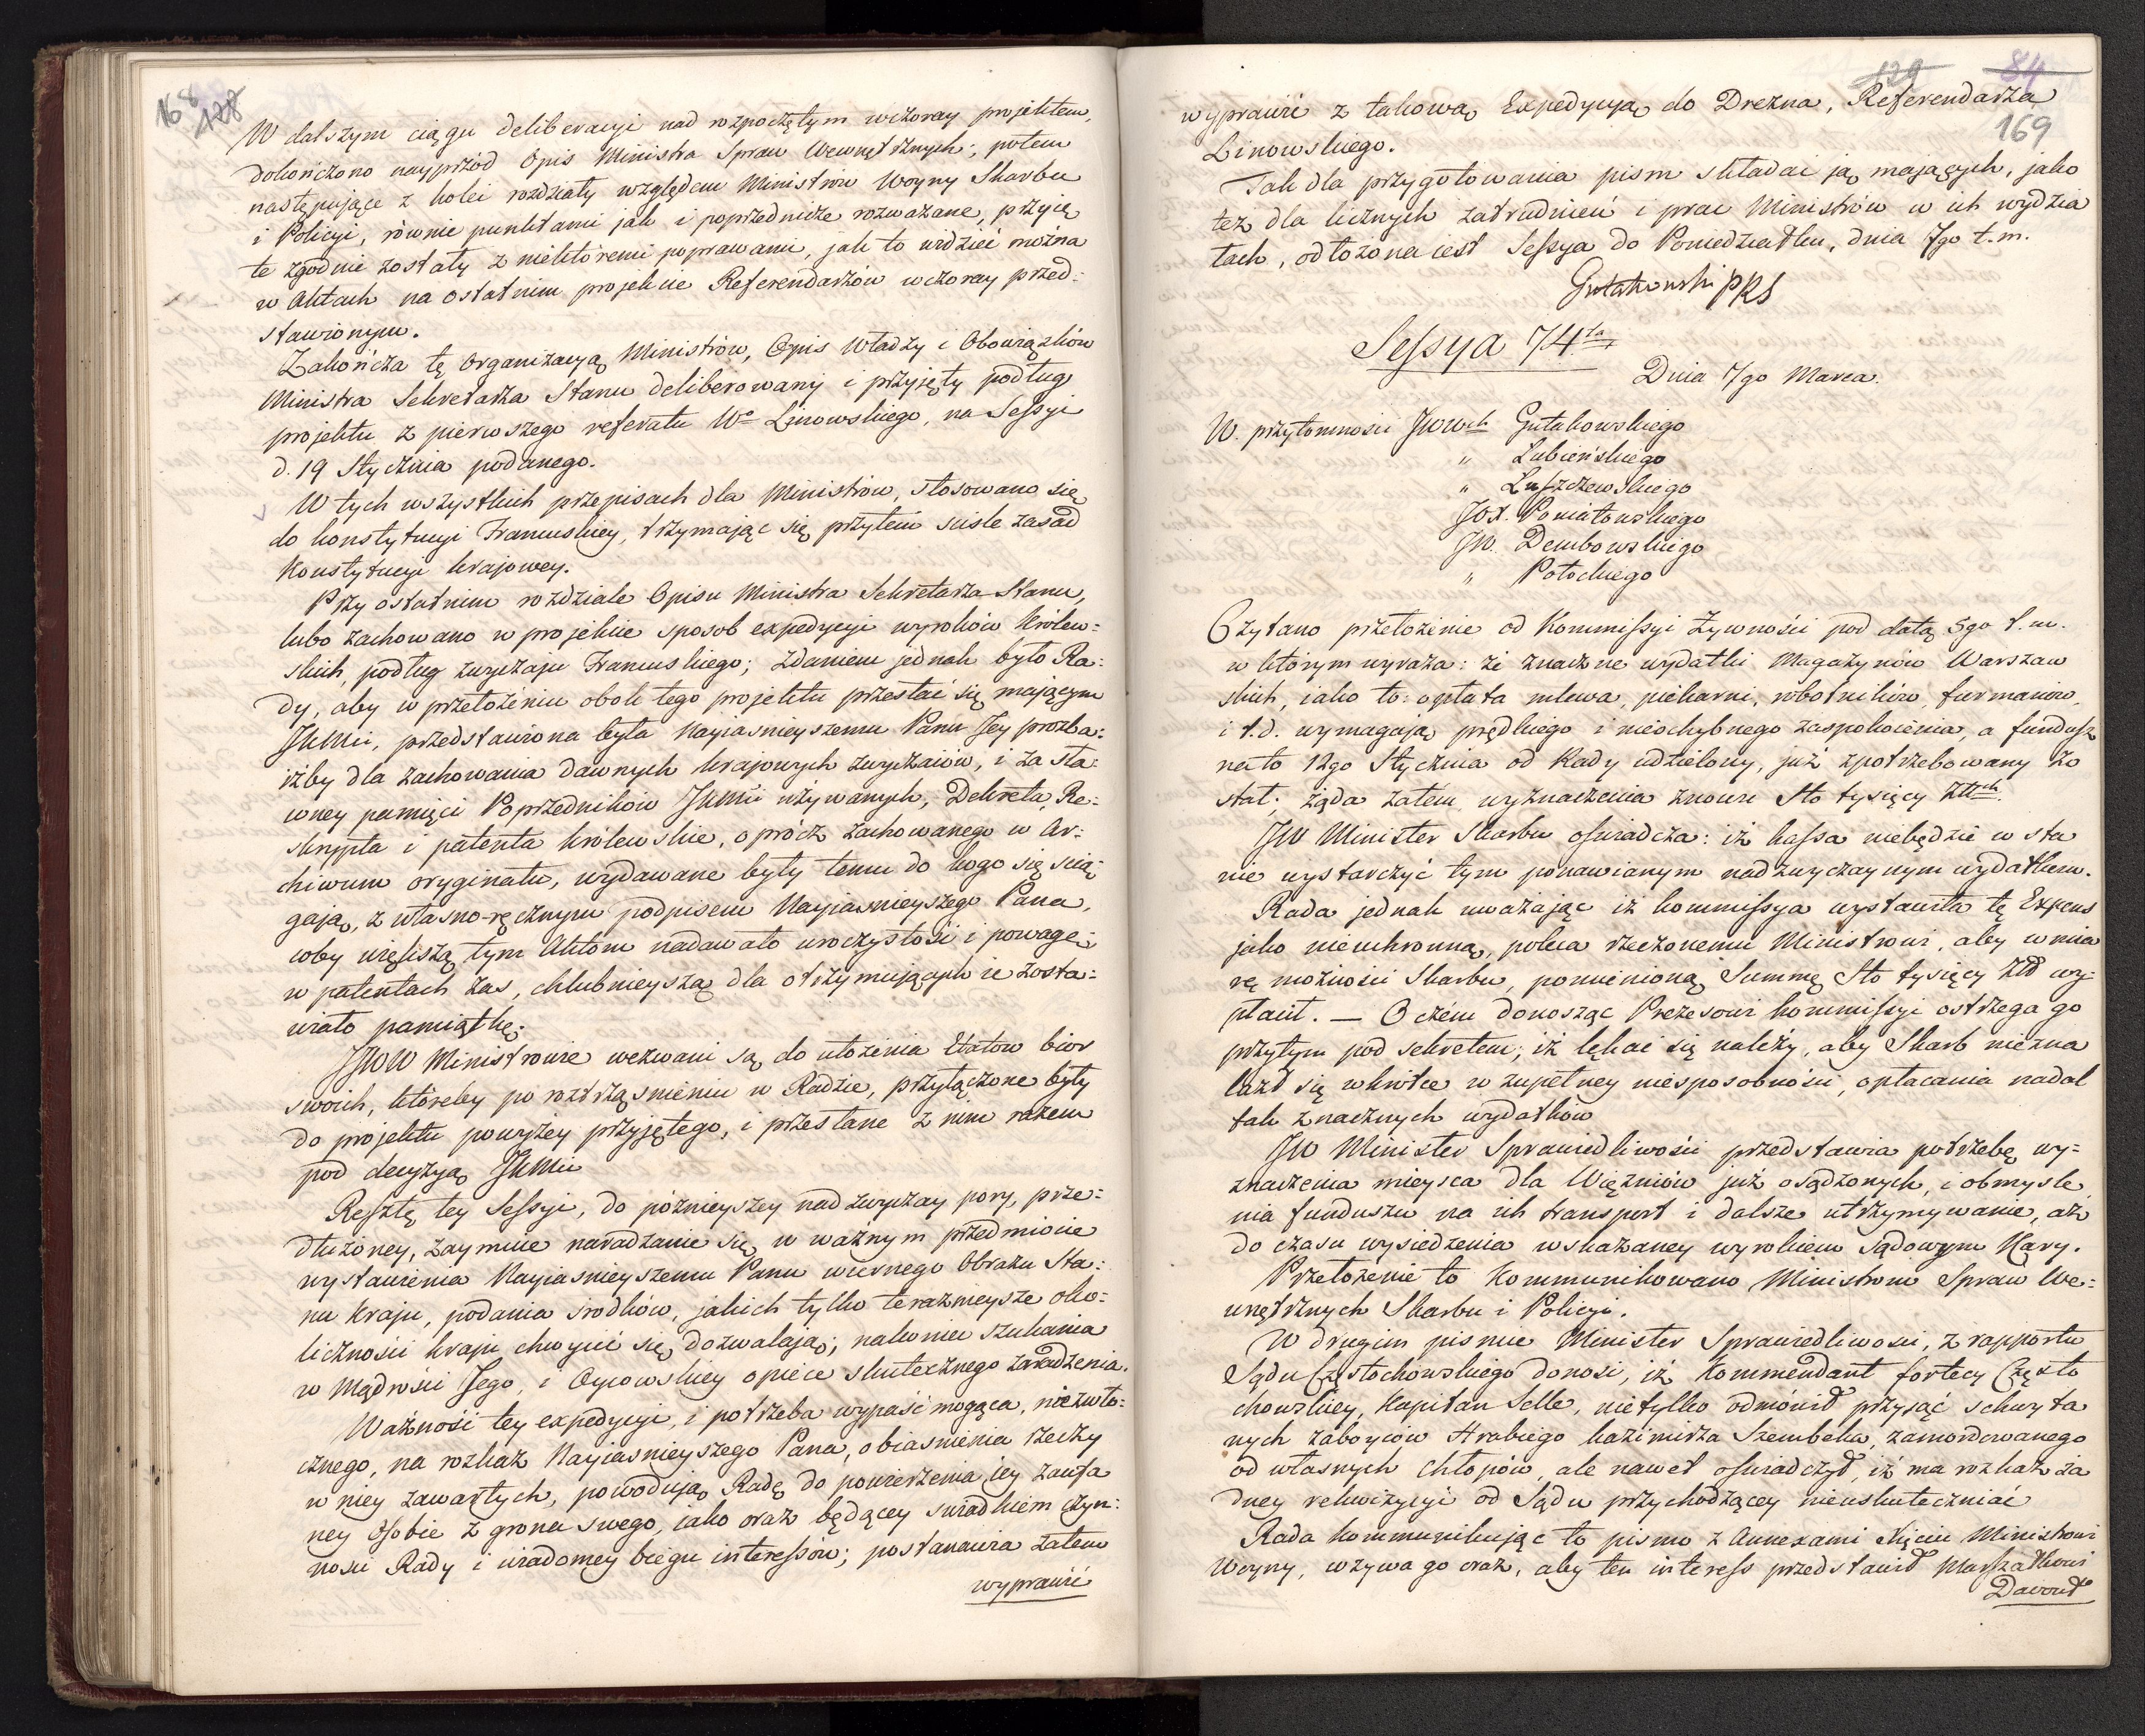 168 128
W dalszym ciągu deliberacyi nad rozpoczętym wczoray projektem,
dokończono nayprzód Opis Ministra Spraw Wewnętrznych; potem
następujące z kolei rozdziały względem Ministrów Woyny Skarbu
i Policyi, równie punktami jak i poprzednicze rozważane, przyię
te zgodnie zostały z niektóremi poprawami, jak to widzieć można
w Aktach na ostatnim projekcie Referendarzów wczoray przed=
stawionym.
Zakończa tę Organizacyą Ministrów, Opis Władzy i Obowiązków
Ministra Sekretarza Stanu deliberowany i przyjęty podług
projektu z pierwszego referatu Wo Linowskiego, na Sessyi
d. 19 Stycznia podanego.
W tych wszystkich przepisach dla Ministrów, stosowano się
do konstytucyi Francuskiey, trzymając się przytem scisle zasad
Konstytucyi krajowey.
Przy ostatnim rozdziale Opisu Ministra Sekretarza Stanu,
lubo zachowano w projekcie sposob expedycyi wyroków królew=
skich, podług zwyczaju Francuskiego; zdaniem jednak było Ra=
dy, aby w przełożeniu obok tego projektu przesłać się mającym
JKMci, przedstawiona była Nayiasnieyszemu Panu Jey prozba=
iżby dla zachowania dawnych krajowych zwyczaiów, i za sła=
wney pamięci Poprzedników JKMci używanych, Dekreta, Re=
skrypta i patenta królewskie, oprócz zachowanego w Ar=
chiwum oryginału, wydawane były temu do kogo się scią=
gają, z własno-ręcznym podpisem Nayiasnieyszego Pana,
coby większą tym Aktom nadawało uroczystość i powagę;
w patentach zas, chlubnieyszą dla otrzymujących ie zosta=
wiało pamiątkę.
JWW Ministrowie wezwani są do ułożenia Etatow biór
swoich, któreby po roztrząsnieniu w Radzie, przyłączone były
do projektu powyżey przyjętego, i przesłane z nim razem
pod decyzyą JKMci
Resztę tey Sessyi, do póznieyszey nad zwyczay pory prze=
dłużoney, zaymuie naradzanie się w ważnym przedmiocie
wystawienia Nayiasnieyszemu Panu wiernego Obrazu Sta=
nu kraju, podania srodków, jakich tylko teraznieysze oko=
liczności kraju chwycić się dozwalają; nakoniec szukania
w Mądrości Jego, i Oycowskiey opiece skutecznego zaradzenia.
Ważność tey expedycyi, i potrzeba wypaść mogąca, niezwło=
cznego, na rozkaz Nayiasnieyszego Pana, obiasnienia rzeczy
w niey zawartych, powodują Radę do powierzenia iey zaufa
ney Osobie z grona swego, iako oraz będącey swiadkiem czyn=
ności Rady i wiadomey biegu interessów; postanawia zatem
wyprawić
129 84
169
wyprawić z takową Expedycyą do Drezna, Referendarza
Linowskiego.
Tak dla przygotowania pism składać ją mających, jako
też dla licznych zatrudnień i prac Ministrów w ich wydzia
łach, odłożona iest Sessya do Poniedziałku, dnia 7go t.m.
Gutakowski PRS
Sessya 74ta
Dnia 7go Marca.
W przytomności JWWch Gutakowskiego
" Łubieńskiego
" Łuszczewskiego
JOX. Poniatowskiego
JW. Dembowskiego
" Potockiego
Czytano przełożenie od Kommissyi Żywności pod datą 5go t.m.
w którym wyraża: że znaczne wydatki Magazynów Warszaw
skich, iako to: opłata mlewa, piekarni, robotników, furmanów,
i t.d. wymagają prędkiego i niechybnego zaspokoienia, a fundusz
na to 12go Stycznia od Rady udzielony, już zpotrzebowany zo
stał; żąda zatem wyznaczenia znowu Sto tysięcy Złłch
JW Minister Skarbu oswiadcza: iż kassa niebędzie w sta
nie wystarczyć tym ponawianym nadzwyczaynym wydatkom.
Rada jednak uważając iż kommissya wystawiła tę Expens
jako nieuchronną, poleca rzeczonemu Ministrowi, aby w mia
rę możności Skarbu, pomienioną Summę Sto tysięcy Złł wy=
płacił. — O czém donosząc Prezesowi kommissyi ostrzega go
przytym pod sekretem; iż lękać się należy, aby Skarb nie zna
lazł się wkrótce w zupełney niesposobności, opłacania nadal
tak znacznych wydatków
JW Minister Sprawiedliwości przedstawia potrzebę wy=
znaczenia mieysca dla Więzniów już osądzonych, i obmysle
nia funduszu na ich transport i dalsze utrzymywanie, aż
do czasu wysiedzenia wskazaney wyrokiem sądowym Kary.
Przełożenie to Kommunikowano Ministrom Spraw We=
wnętrznych Skarbu i Policyi.
W drugim pismie Minister Sprawiedliwości, z rapportu
Sądu Częstochowskiego donosi, iż Kommendant fortecy Często
chowskiey, Kapitan Selle, nietylko odmówił przyjąć schwyta
nych zaboyców Hrabiego Kazimierza Szembeka, zamordowanego
od własnych chłopów, ale nawet oswiadczył, iż ma rozkaz ża
dney rekwizycyi od Sądu przychodzącey nieuskuteczniać
Rada kommunikując to pismo z Annexami Xięciu Ministrowi
Woyny, wzywa go oraz, aby ten interess przedstawił Marszałkowi
Davout